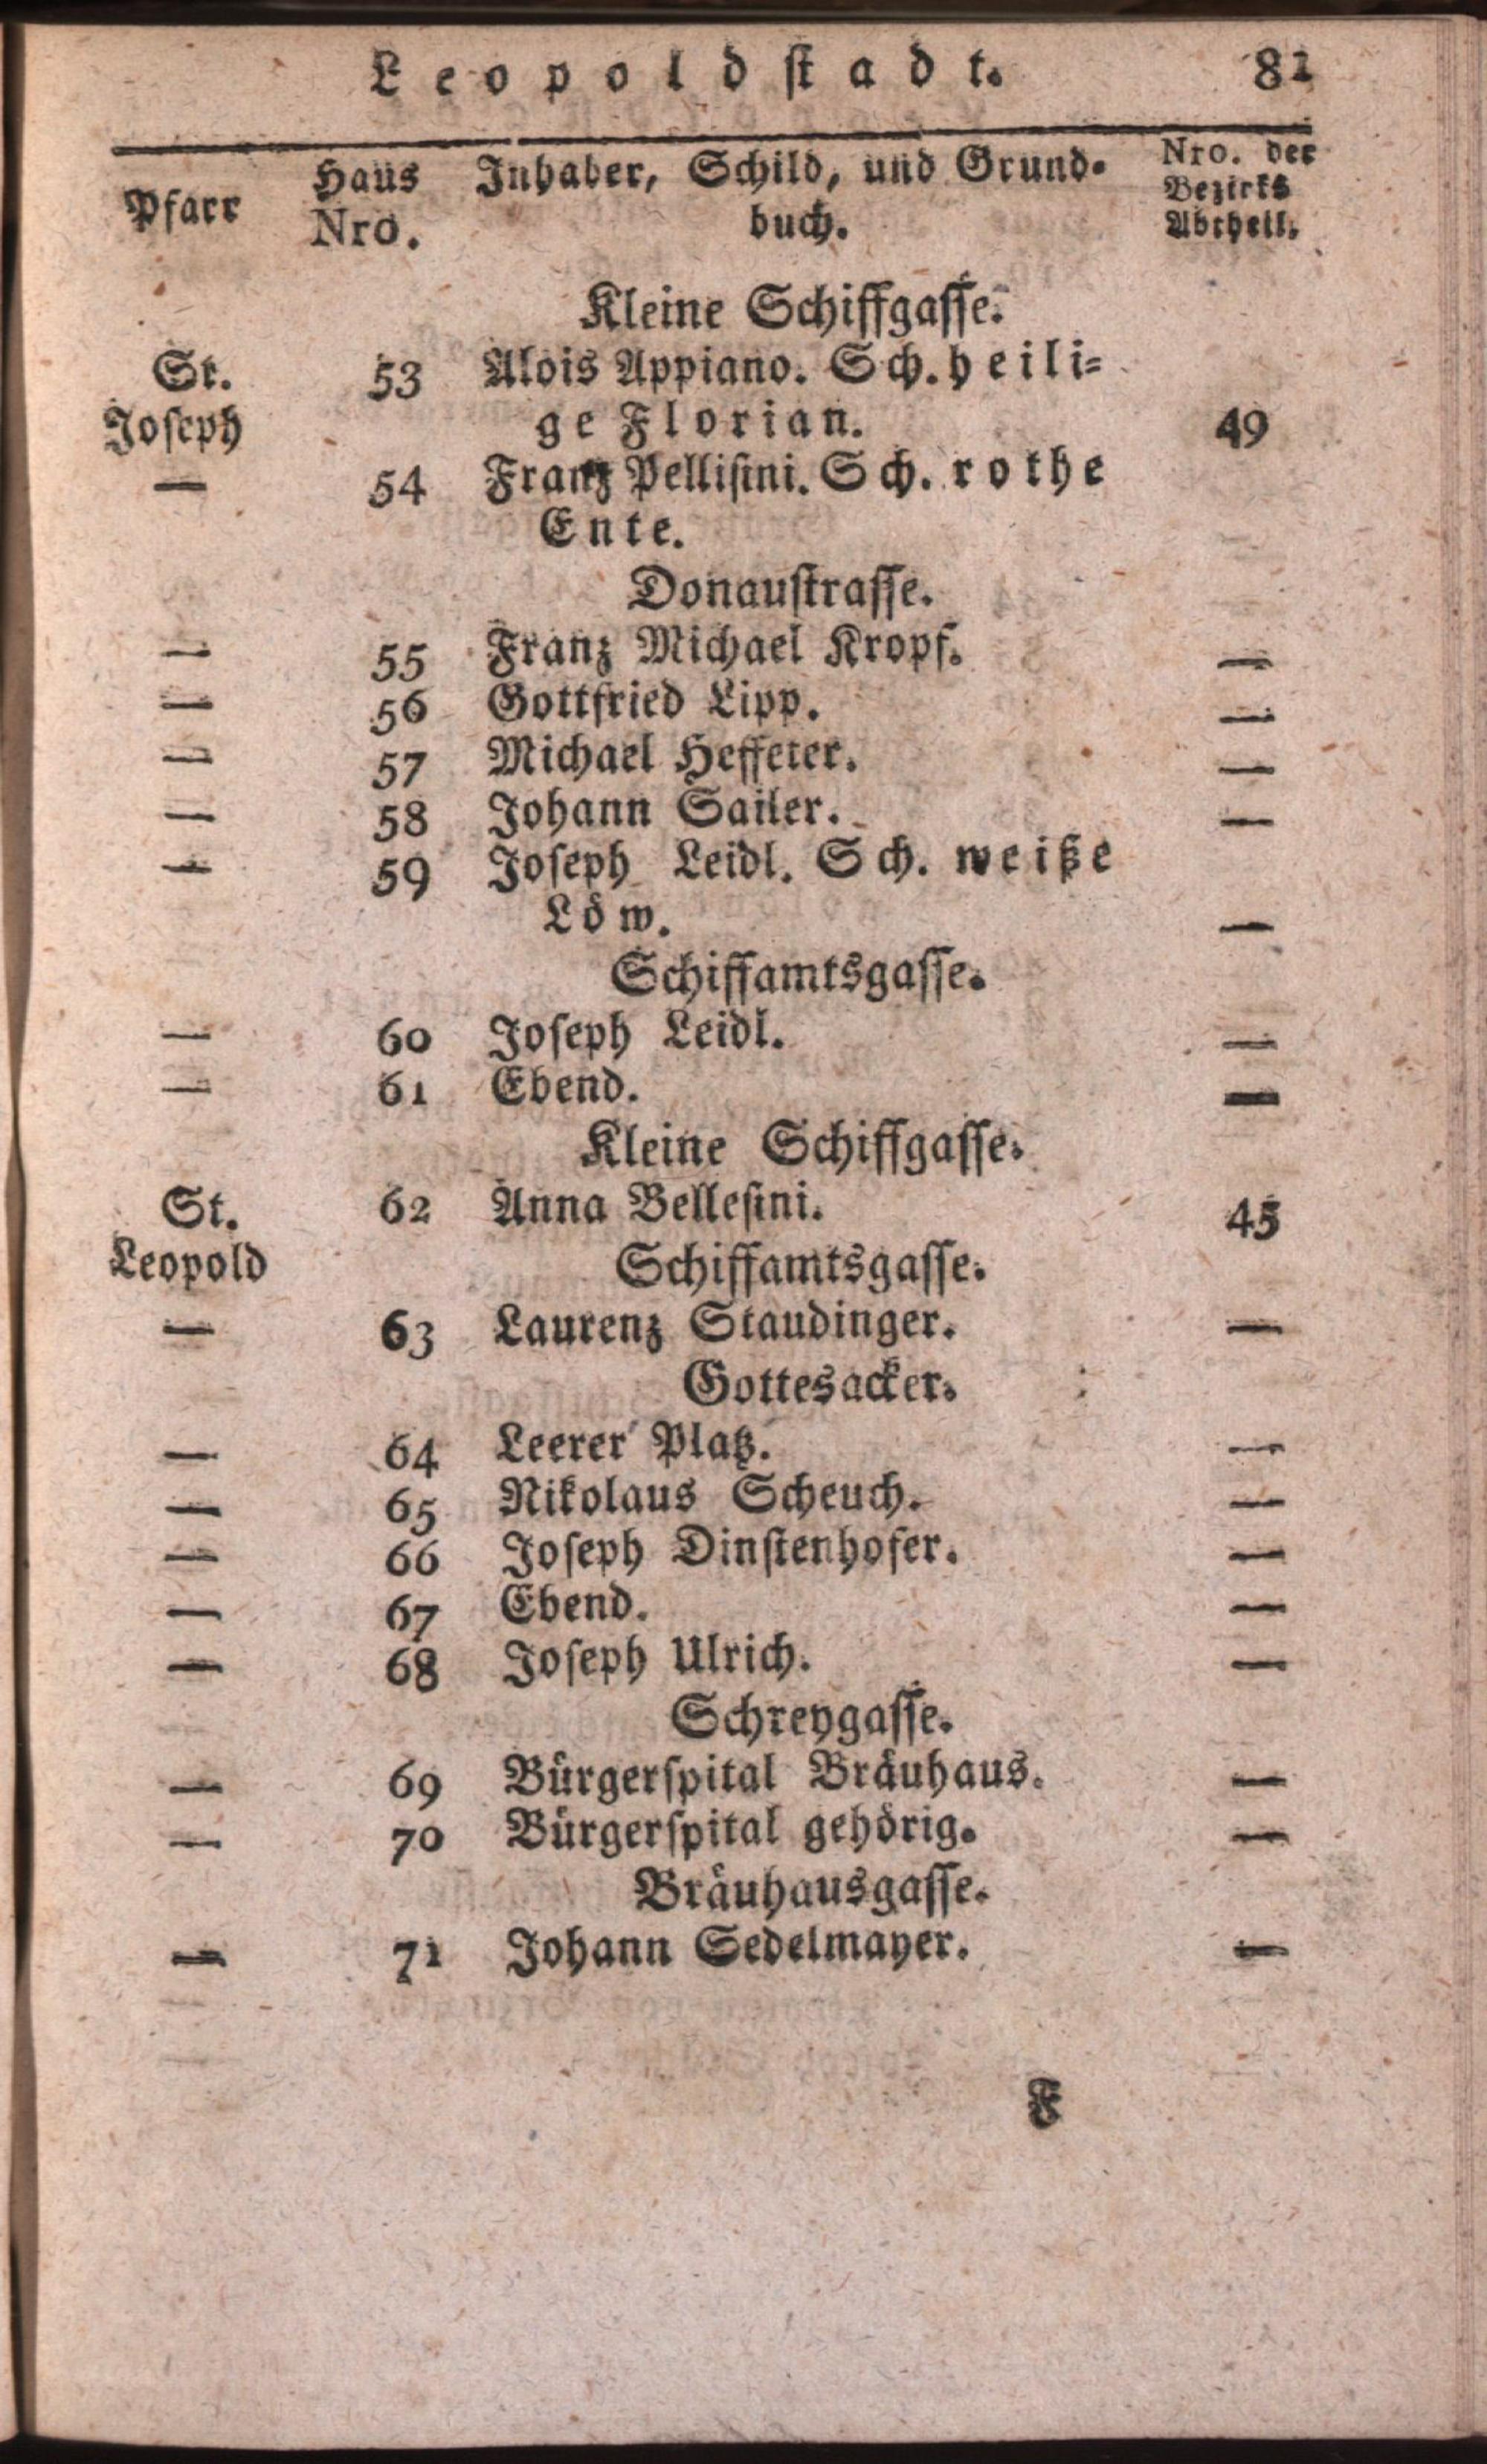 Leopoldstadt. 81
Pfarr Haus Nro. Inhaber, Schild, und Grund- Nro. der Bezirks Abtheil.
buch.
Kleine Schiffgasse.
St. 53 Alois Appiano. Sch. heili-
Joseph ge Florian. 49
— 54 Franz Pellisini. Sch. rothe
Ente.
Donaustrasse.
— 55 Franz Michael Kropf. —
— 56 Gottfried Lipp. —
— 57 Michael Heffeter. —
— 58 Johann Sailer. —
— 59 Joseph Leidl. Sch. weiße
Löw. —
Schiffamtsgasse.
— 60 Joseph Leidl. —
— 61 Ebend. —
Kleine Schiffgasse.
St. 62 Anna Bellesini. 45
Leopold Schiffamtsgasse.
— 63 Laurenz Staudinger. —
Gottesacker.
— 64 Leerer Platz. —
— 65 Nikolaus Scheuch. —
— 66 Joseph Dinstenhofer. —
— 67 Ebend. —
— 68 Joseph Ulrich. —
Schreygasse.
— 69 Bürgerspital Bräuhaus. —
— 70 Bürgerspital gehörig. —
Bräuhausgasse.
— 71 Johann Sedelmayer. —
F